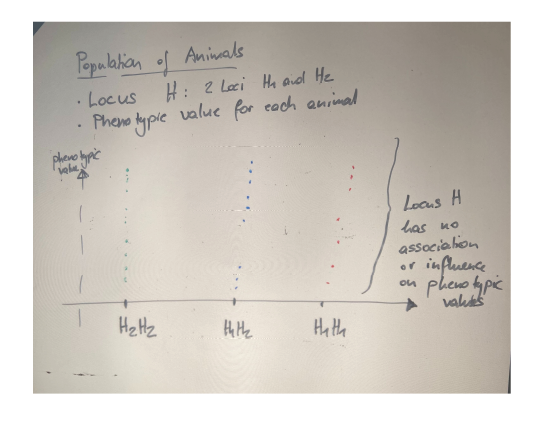 Population of Animals
· Locus H: 2 Loci H₁ and H₂
· Phenotypic value for each animal
phenotypic
value
Locus H
has no
association
or influence
on phenotypic
values
H₂H₂
H₁H₂
H₁H₁